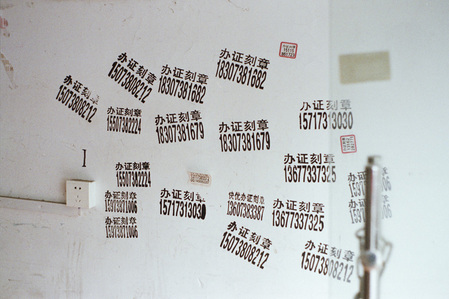 办证刻章
15073808212
办证刻章
15073808212
办证刻章
18307381682
办证刻章
18307381682
办证刻章
15507382224
办证刻章
18307381679
办证刻章
18307381679
办证刻章
15717313030
办证刻章
15507382224
办证刻章
13677337325
办证刻章
15717313030
办证刻章
13607383387
办证刻章
13677337325
办证刻章
办证刻章
办证刻章
15073808212
办证刻章
15073808212